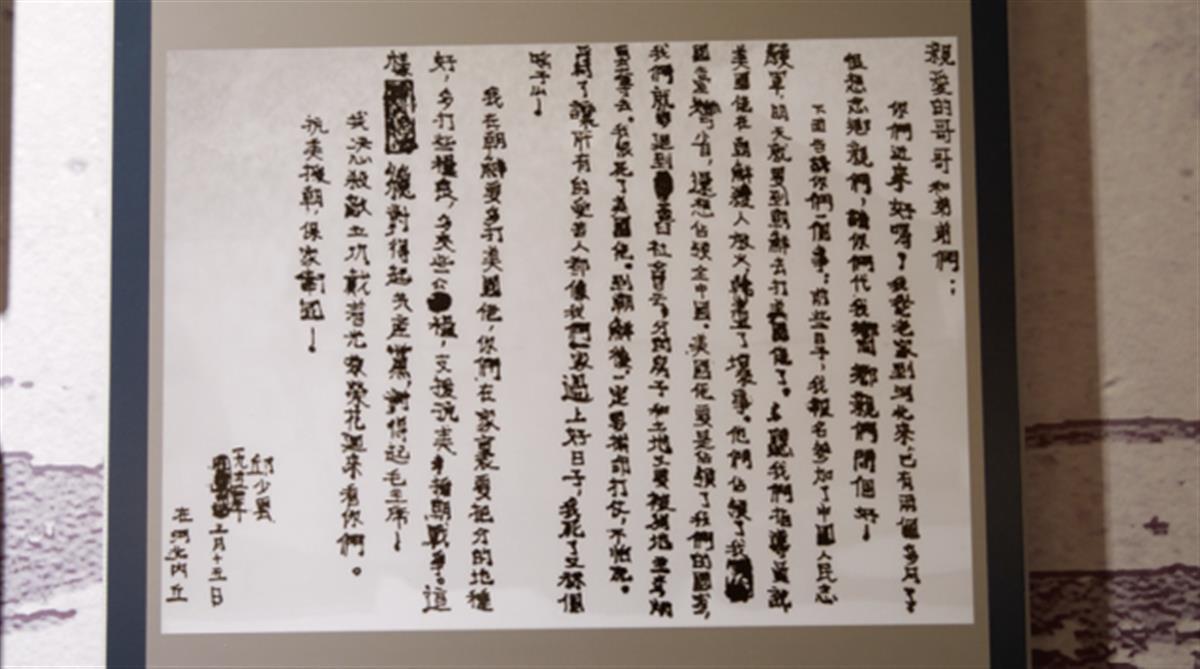 親愛的哥哥和弟弟們：
你們近來好嗎？我從老家到河北來，已有兩個多月了
很想念鄉親們，請你們代我向鄉親們問個好！
下面告訴你們一個事：前些日子，我報名參加了中國人民志
願軍，明天就要到朝鮮去打美國佬了。聽我們指導員說
美國佬在朝鮮殺人放火，幹盡了壞事。他們佔領了我
國臺灣省，還想佔領全中國。美國佬要是佔領了我們的國家，
我們就要退到舊社會去，分的房子和土地又要被地主
去。我恨死了美國佬。到朝鮮後一定要拼命打仗，不怕死。
了讓所有的受苦人都像我們家過上好日子，我死了又個
啥子！
我在朝鮮要多打美國佬，你們在家裏要把分的地種
好，多打些糧食，多交些公糧，支援抗美援朝戰爭。這
樣才能對得起共產黨，對得起毛主席！
我決心殺敵立功戴着光榮花回來看你們。
抗美援朝，保家衛國！
邱少雲
一九五三年
月十五日
在河北內丘